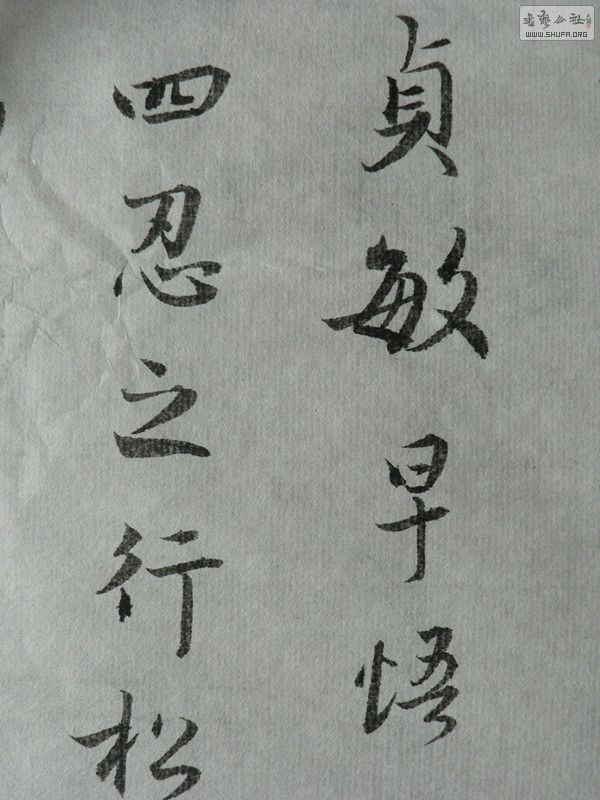 貞敏早悟
四忍之行松
書藝公社
WWW.SHUFA.ORG